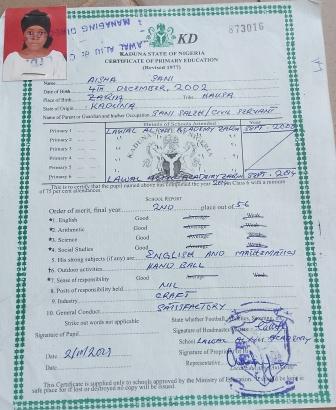 873016
KD
KADUNA STATE OF NIGERIA
CERTIFICATE OF PRIMARY EDUCATION
(Revised 1977)
Name AISHA SANI
Date of Birth 4TH DECEMBER, 2002
Place of Birth ZARIA Tribe HAUSA
State of Origin KADUNA
Name of Parent or Guardian and his/her Occupation SANI SALEH/CIVIL SERVANT
Details of Schools Attended
Primary 1 LAWAL ALIYU ACADEMY ZARIA SEPT - 2008
Primary 2
Primary 3
Primary 4
Primary 5
Primary 6 LAWAL ALIYU ACADEMY ZARIA SEPT - 2014
This is to certify that the pupil named above has completed the year 2014 Class 6 with a minimum
of 75 per cent attendances.
SCHOOL REPORT
Order of merit, final year 2ND place out of 56
*1. English Good Average Weak
*2. Arithmetic Good Average Weak
*3. Science Good Average Weak
*4. Social Studies Good Average Weak
5. His strong subjects (if any) are: ENGLISH AND MATHEMATICS
*6. Outdoor activities HAND BALL
*7. Sense of responsibility Good Average Weak
8. Posts of responsibility held NIL
9. Industry CRAFT
10. General Conduct SATISFACTORY
Strike out words not applicable
Signature of Pupil
Signature of Headmaster
School LAWAL ALIYU ACADEMY
Date 2/10/2021
Signature of
Representative
Date
This Certificate is supplied only to schools approved by the Ministry of Education. It should be kept in
safe place for if lost or destroyed no copy will be issued.